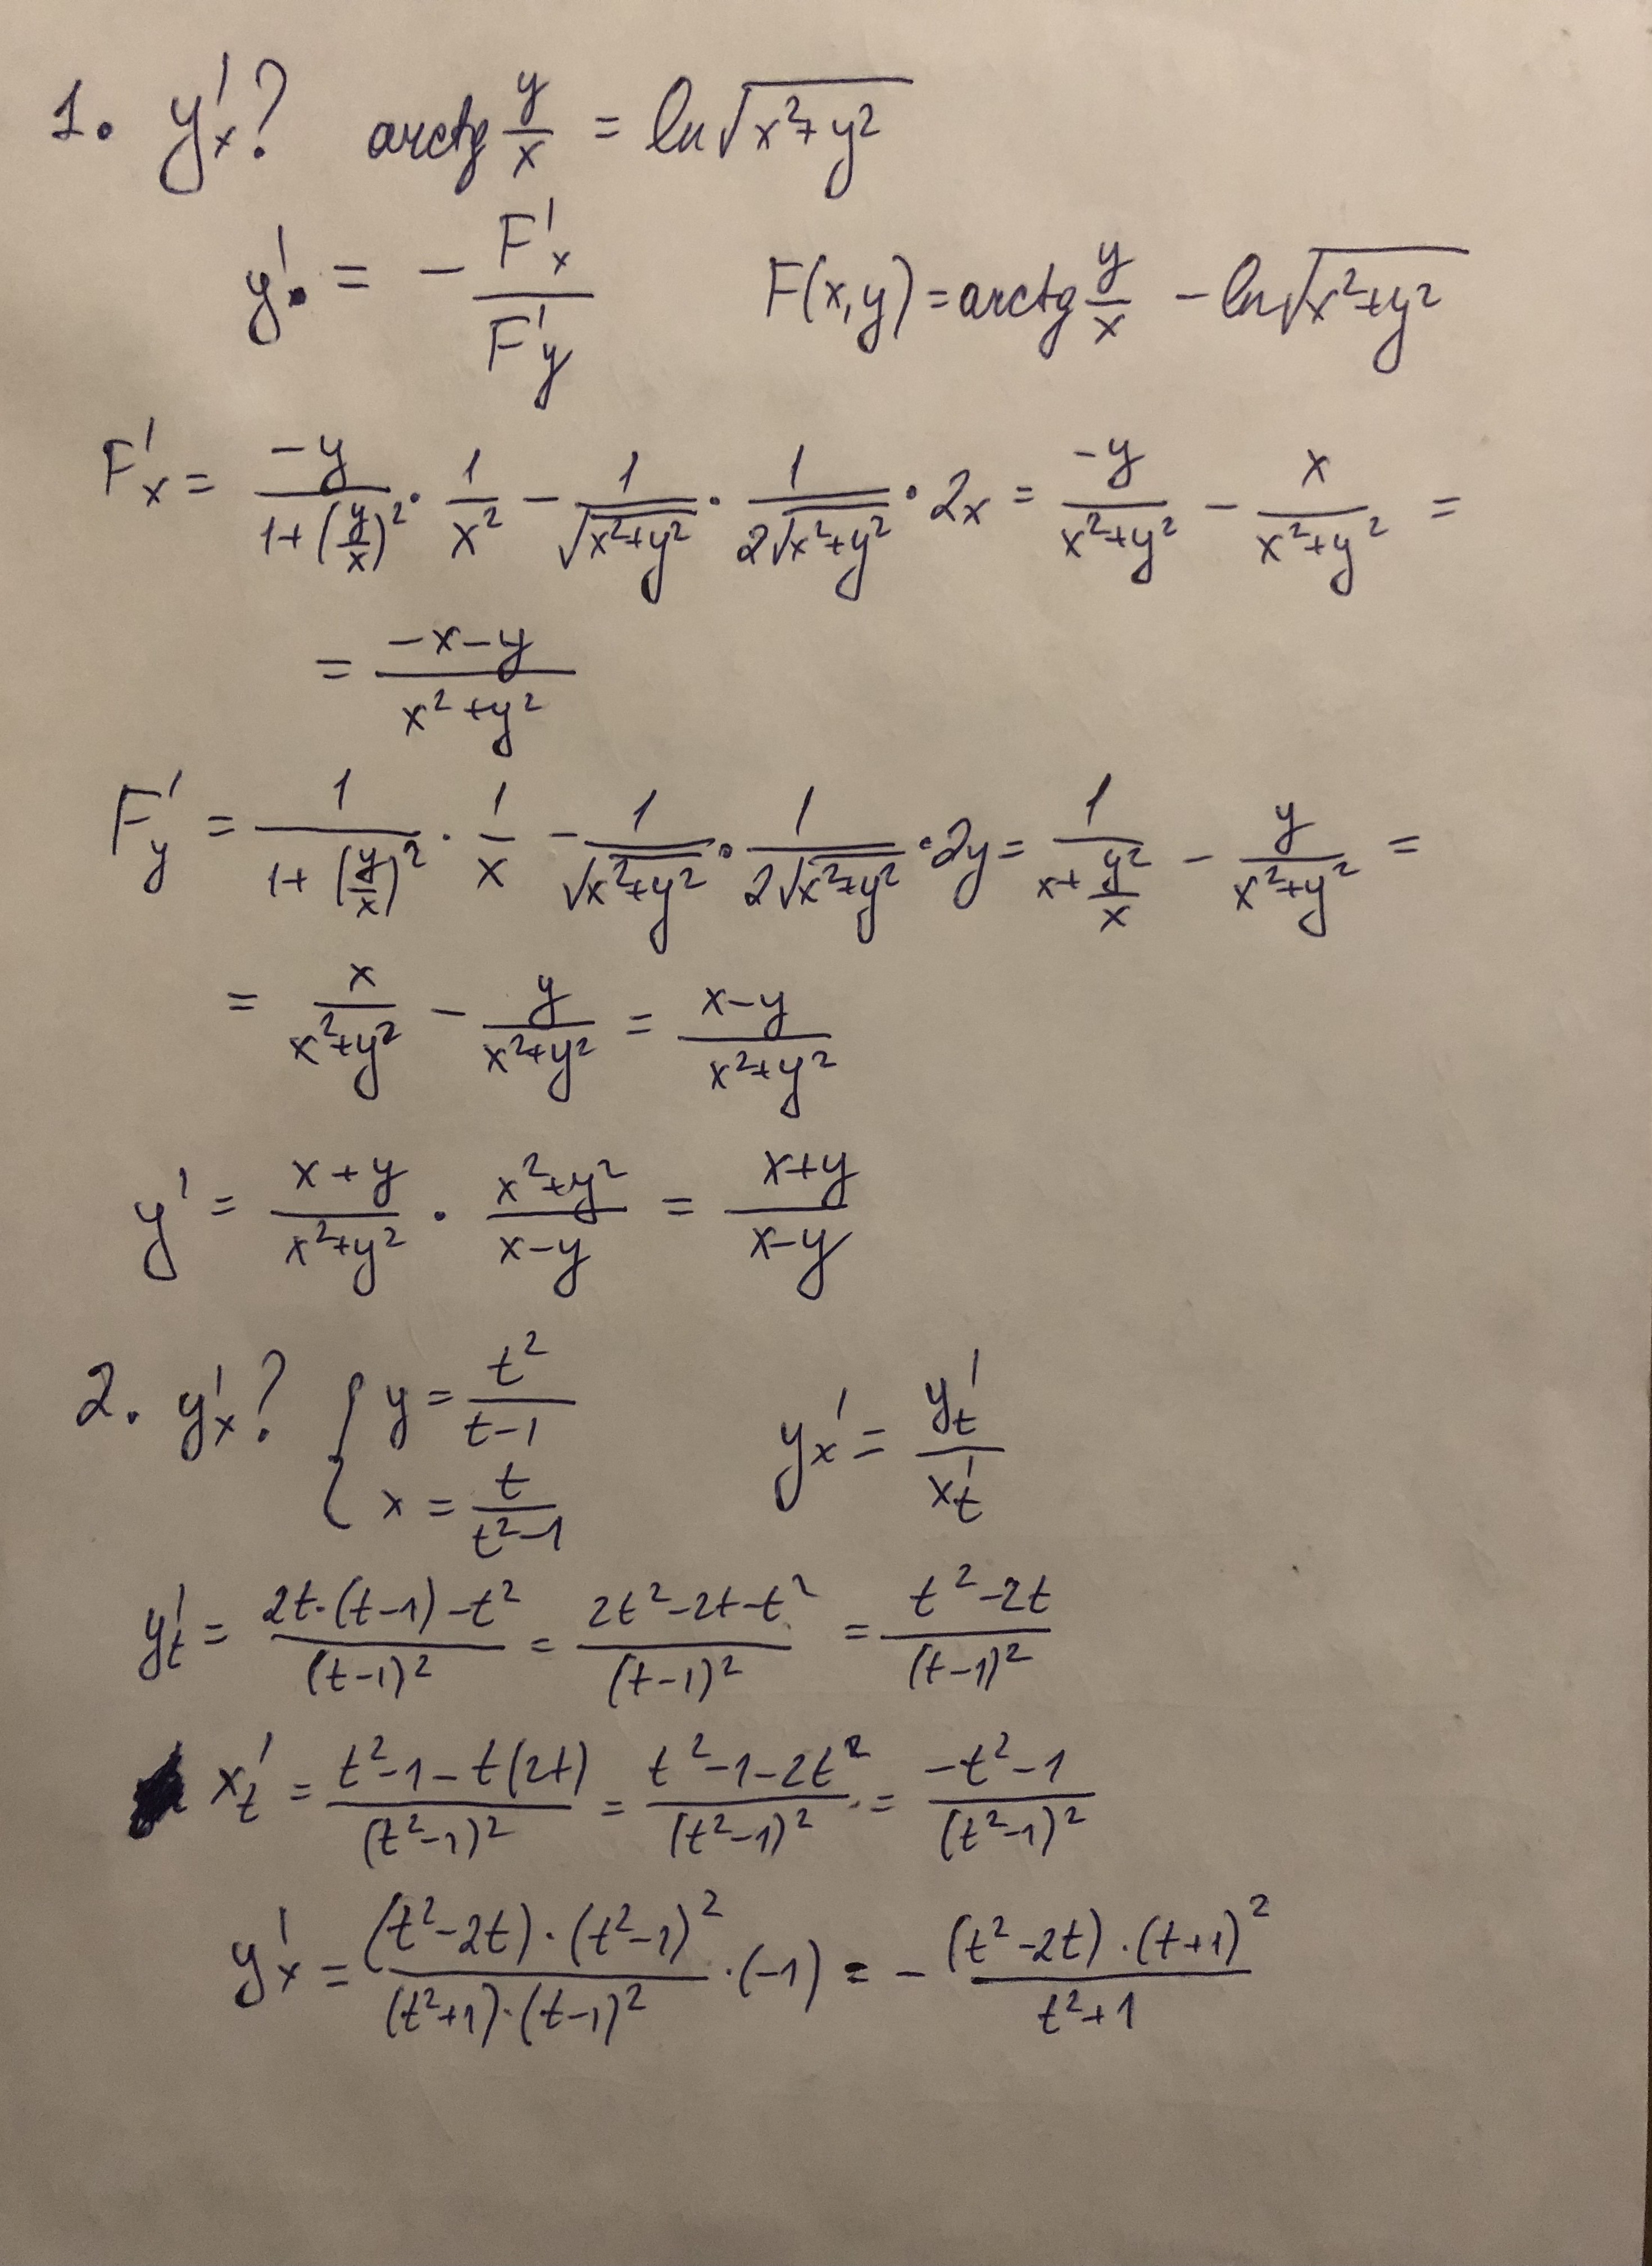 1. y'ₓ? arctg y/x = ln√(x²+y²)
y' = - F'ₓ/F'y F(x,y) = arctg y/x - ln√(x²+y²)
F'ₓ = -y/(1+(y/x)²) · 1/x² - 1/√(x²+y²) · 1/(2√(x²+y²)) · 2x = -y/(x²+y²) - x/(x²+y²) =
= (-x-y)/(x²+y²)
F'y = 1/(1+(y/x)²) · 1/x - 1/√(x²+y²) · 1/(2√(x²+y²)) · 2y = 1/(x+y²/x) - y/(x²+y²) =
= x/(x²+y²) - y/(x²+y²) = (x-y)/(x²+y²)
y' = (x+y)/(x²+y²) · (x²+y²)/(x-y) = (x+y)/(x-y)
2. y'ₓ? { y = t²/(t-1) y'ₓ = y'ₜ/x'ₜ
x = t/(t²-1)
y'ₜ = (2t·(t-1)-t²)/(t-1)² = (2t²-2t-t²)/(t-1)² = (t²-2t)/(t-1)²
x'ₜ = (t²-1-t(2t))/(t²-1)² = (t²-1-2t²)/(t²-1)² = (-t²-1)/(t²-1)²
y'ₓ = ((t²-2t)·(t²-1)²)/((t²+1)·(t-1)²) · (-1) = - ((t²-2t)·(t+1)²)/(t²+1)